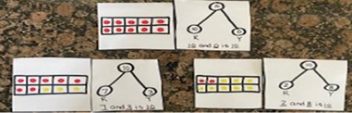 10
K
Y
10 and 0 is 10
10
7
3
K
Y
7 and 3 is 10
K
Y
2 and 8 is 10